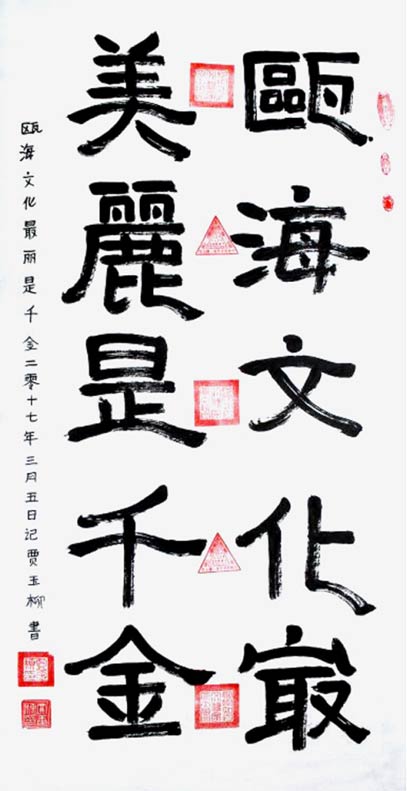 甌海文化㝡
美麗是千金
瓯海文化最丽是千金二零十七年三月五日记贾玉柳書